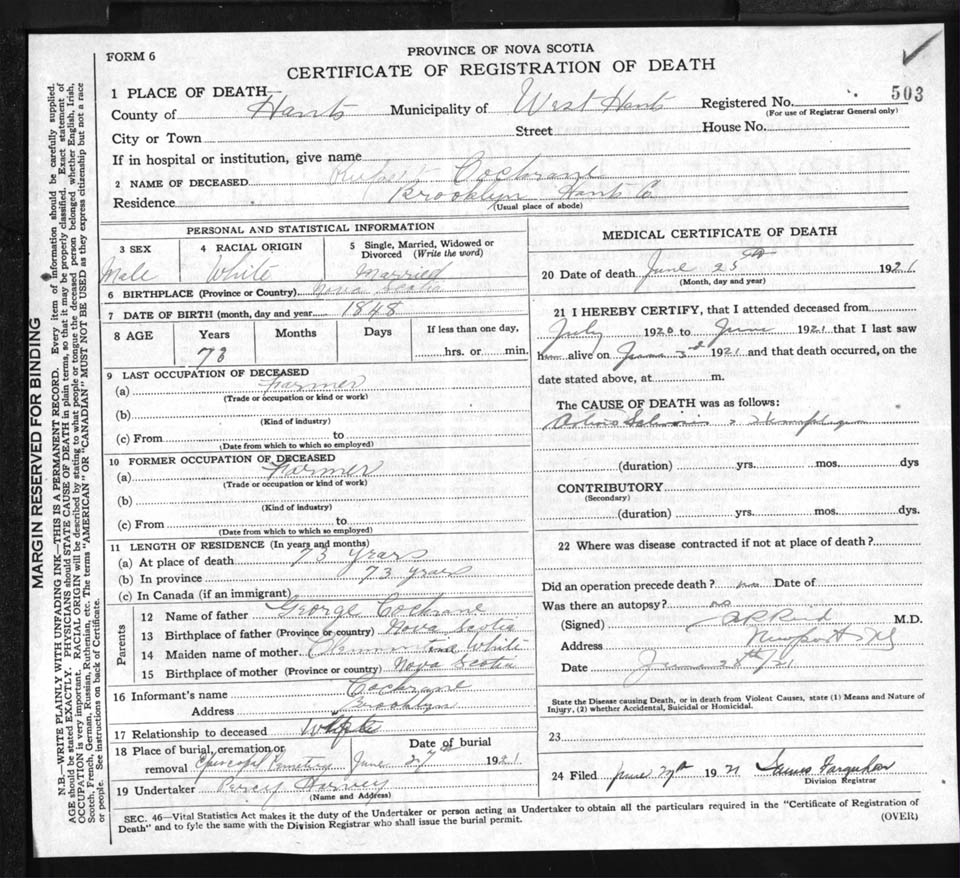 FORM 6
PROVINCE OF NOVA SCOTIA
CERTIFICATE OF REGISTRATION OF DEATH
1 PLACE OF DEATH
County of Hants Municipality of West Hants Registered No. 503
(For use of Registrar General only)
City or Town Street House No.
If in hospital or institution, give name
2 NAME OF DECEASED Cochrane
Residence Brooklyn Hants Co
(Usual place of abode)
PERSONAL AND STATISTICAL INFORMATION
3 SEX 4 RACIAL ORIGIN 5 Single, Married, Widowed or Divorced (Write the word)
Male White Married
6 BIRTHPLACE (Province or Country) Nova Scotia
7 DATE OF BIRTH (month, day and year) 1848
8 AGE Years Months Days If less than one day,
73 hrs. or min.
9 LAST OCCUPATION OF DECEASED
(a) Farmer
(Trade or occupation or kind of work)
(b)
(Kind of industry)
(c) From to
(Date from which to which so employed)
10 FORMER OCCUPATION OF DECEASED
(a) Farmer
(Trade or occupation or kind of work)
(b)
(Kind of industry)
(c) From to
(Date from which to which so employed)
11 LENGTH OF RESIDENCE (In years and months)
(a) At place of death 73 years
(b) In province 73 years
(c) In Canada (if an immigrant)
Parents
12 Name of father George Cochrane
13 Birthplace of father (Province or country) Nova Scotia
14 Maiden name of mother White
15 Birthplace of mother (Province or country) Nova Scotia
16 Informant's name Cochrane
Address Brooklyn
17 Relationship to deceased Wife
18 Place of burial, cremation or removal Episcopal Cemetery Date of burial June 27th 1921
19 Undertaker Percy Harvey
(Name and Address)
MEDICAL CERTIFICATE OF DEATH
20 Date of death June 25th 1921
(Month, day and year)
21 I HEREBY CERTIFY, that I attended deceased from
July 1920 to June 1921 that I last saw
him alive on June 3rd 1921 and that death occurred, on the
date stated above, at m.
The CAUSE OF DEATH was as follows:
(duration) yrs. mos. dys
CONTRIBUTORY
(Secondary)
(duration) yrs. mos. dys.
22 Where was disease contracted if not at place of death?
Did an operation precede death? no Date of
Was there an autopsy? no
(Signed) A R Reid M.D.
Address Newport NS
Date June 28th/21
State the Disease causing Death, or in death from Violent Causes, state (1) Means and Nature of
Injury, (2) whether Accidental, Suicidal or Homicidal.
23
24 Filed June 29th 1921 James Farquhar
Division Registrar
SEC. 46—Vital Statistics Act makes it the duty of the Undertaker or person acting as Undertaker to obtain all the particulars required in the "Certificate of Registration of
Death" and to fyle the same with the Division Registrar who shall issue the burial permit. (OVER)
MARGIN RESERVED FOR BINDING
N.B.—WRITE PLAINLY WITH UNFADING INK—THIS IS A PERMANENT RECORD. Every item of information should be carefully supplied.
AGE should be stated EXACTLY. PHYSICIANS should STATE CAUSE OF DEATH in plain terms, so that it may be properly classified. Exact statement of
OCCUPATION is very important. RACIAL ORIGIN will be described by stating to what people or tongue the deceased person belonged whether English, Irish,
Scotch, French, German, Russian, Ruthenian, etc. The terms "AMERICAN" OR "CANADIAN" MUST NOT BE USED as they express citizenship but not a race
or people. See instructions on back of Certificate.